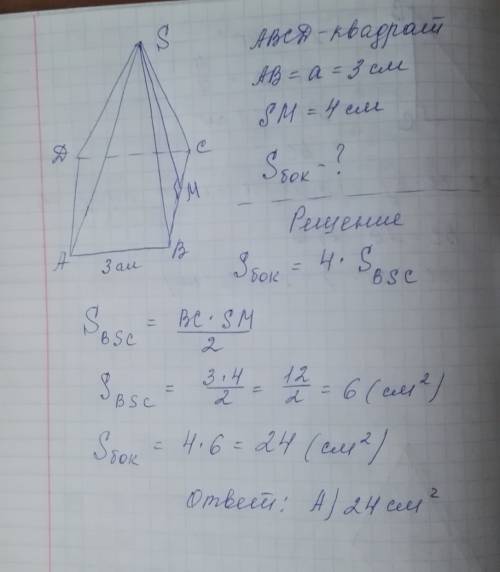 S
ABCD - квадрат
AB = a = 3 см
SM = 4 см
Sбок - ?
D
C
M
A
B
3 см
Решение
Sбок = 4 · S_BSC
S_BSC = BC · SM / 2
S_BSC = 3 · 4 / 2 = 12 / 2 = 6 (см²)
Sбок = 4 · 6 = 24 (см²)
Ответ: А) 24 см²